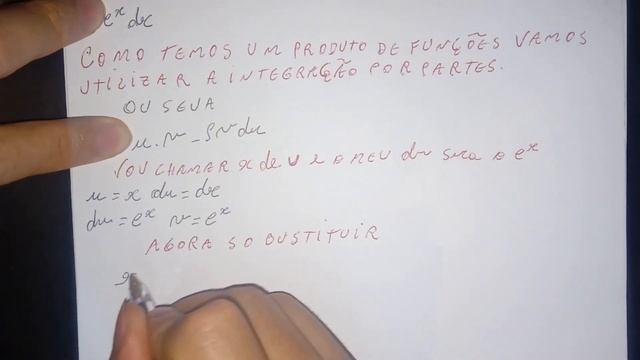 e^x dx
COMO TEMOS UM PRODUTO DE FUNÇÕES VAMOS
UTILIZAR A INTEGRAÇÃO POR PARTES.
OU SEVA
u.v - ∫v du
VOU CHAMAR x de u e o MEU dv sera o e^x
u = x du = dx
dv = e^x v = e^x
AGORA SO SUSTITUIR
x